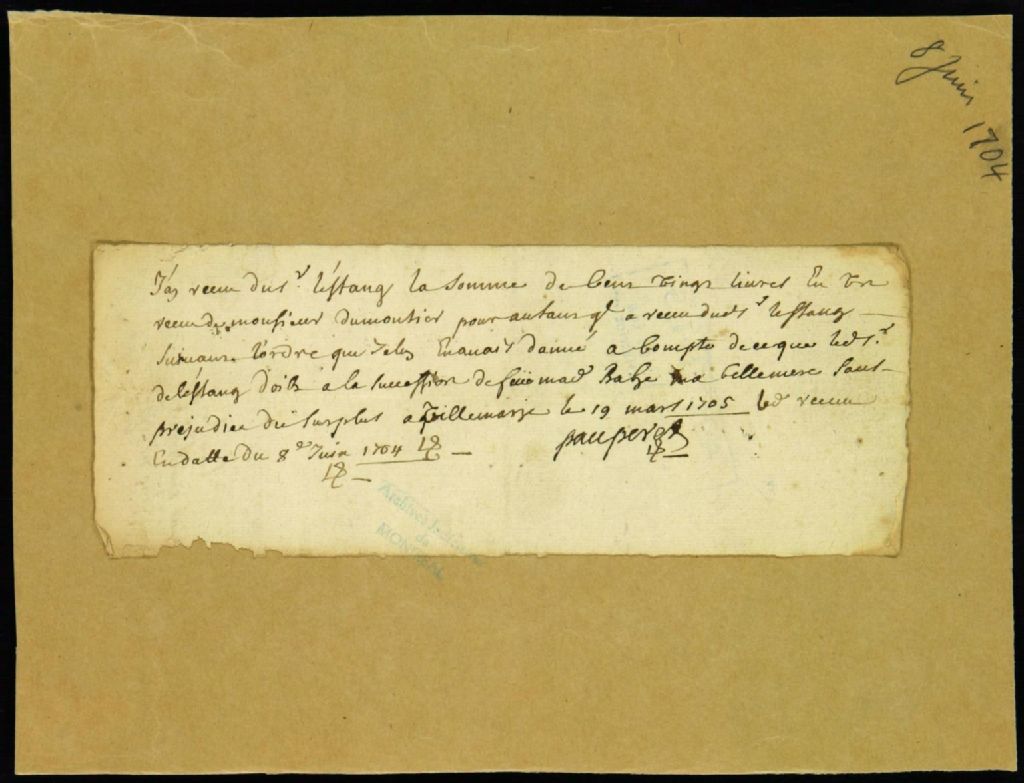 8 Juin 1704
J'ay receu du sr. lestang la somme de Cent vingt livres En un
receu de monsieur dumontier pour autant ql a receu dudt sr lestang
suivant l'ordre que Je luy En avais donné a Compte de ce que led. sr
de lestang doibt a la succession de feüe mad Babe ma bellemere sans
prejudice du surplus a villemarye le 19 mars 1705 led receu
En datte du 8e Juin 1704
Archives
de
MONTREAL